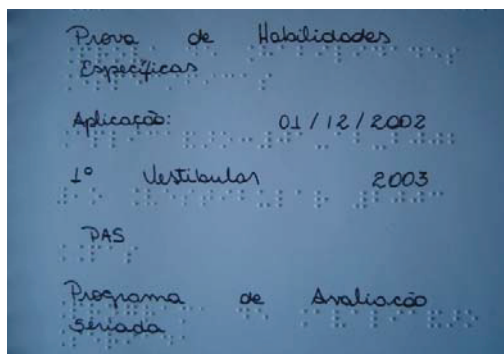 Prova de Habilidades
Específicas
Aplicação: 01/12/2002
1º Vestibular 2003
PAS
Programa de Avaliação
Seriada